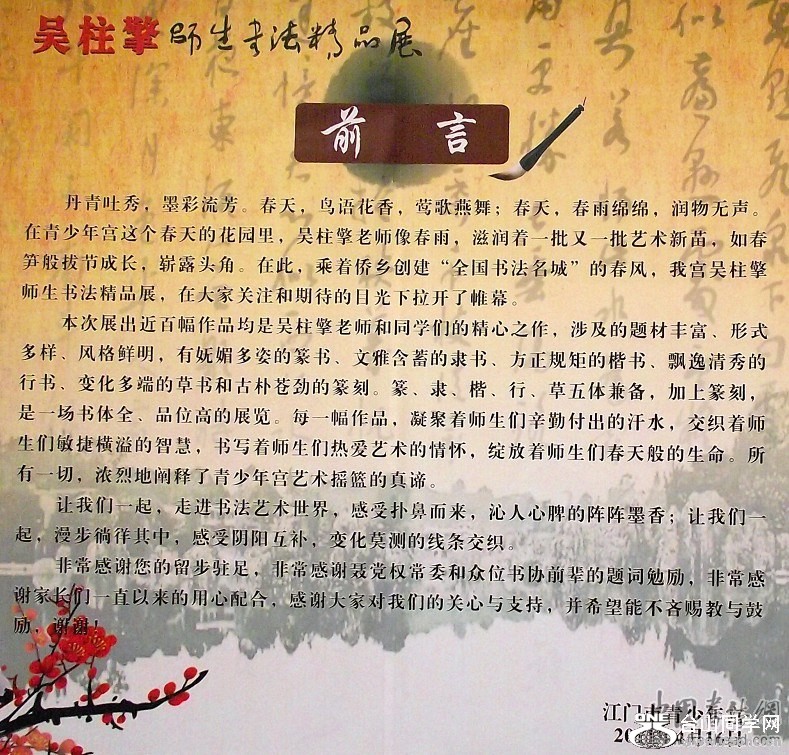 吴柱擎师生书法精品展
前言
丹青吐秀，墨彩流芳。春天，鸟语花香，莺歌燕舞；春天，春雨绵绵，润物无声。
在青少年宫这个春天的花园里，吴柱擎老师像春雨，滋润着一批又一批艺术新苗，如春
笋般拔节成长，崭露头角。在此，乘着侨乡创建“全国书法名城”的春风，我宫吴柱擎
师生书法精品展，在大家关注和期待的目光下拉开了帷幕。
本次展出近百幅作品均是吴柱擎老师和同学们的精心之作，涉及的题材丰富、形式
多样、风格鲜明，有妩媚多姿的篆书、文雅含蓄的隶书、方正规矩的楷书、飘逸清秀的
行书、变化多端的草书和古朴苍劲的篆刻。篆、隶、楷、行、草五体兼备，加上篆刻，
是一场书体全、品位高的展览。每一幅作品，凝聚着师生们辛勤付出的汗水，交织着师
生们敏捷横溢的智慧，书写着师生们热爱艺术的情怀，绽放着师生们春天般的生命。所
有一切，浓烈地阐释了青少年宫艺术摇篮的真谛。
让我们一起，走进书法艺术世界，感受扑鼻而来，沁人心脾的阵阵墨香；让我们一
起，漫步徜徉其中，感受阴阳互补，变化莫测的线条交织。
非常感谢您的留步驻足，非常感谢聂党权常委和众位书协前辈的题词勉励，非常感
谢家长们一直以来的用心配合，感谢大家对我们的关心与支持，并希望能不吝赐教与鼓
励，谢谢！
江门市青少年宫
台山同学网